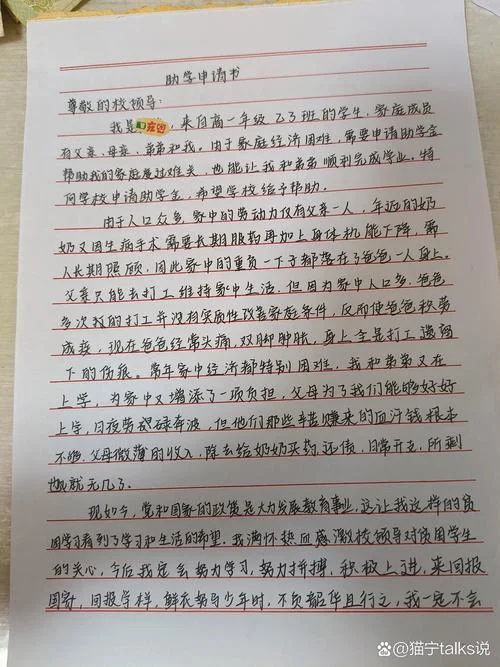 助学申请书
尊敬的校领导:
我是 来自高一年级乙3班的学生,家庭成员
有父亲、母亲、弟弟和我。由于家庭经济困难,需要申请助学金
帮助我的家庭度过难关,也能让我和弟弟顺利完成学业。特
向学校申请助学金,希望学校给予帮助。
由于人口众多,家中的劳动力仅有父亲一人,年迈的奶
奶又因生病手术需要长期服药再加上身体机能下降,需
人长期照顾,因此家中的重负一下子都落在了爸爸一人身上。
父亲只能去打工维持家中生活,但因为家中人口多,爸爸
多次找的打工并没有实质性改善家庭条件,反而使爸爸积劳
成疾,现在爸爸经常头痛,双脚肿胀,身上全是打工遗留
下的伤痕。常年家中经济都特别困难,我和弟弟又在
上学,为家中又增添了一项负担,父母为了我们能够好好
上学,日夜劳碌奔波,但他们那些辛苦赚来的血汗钱根本
不够,父母微薄的收入,除去给奶奶买药、还债、日常开支,所剩
也就无几了。
现如今,党和国家的政策是大力发展教育事业,这让我这样的贫
困学习看到了学习和生活的希望。我满怀热血感激校领导对贫困学生
的关心,今后我定会努力学习,努力拼搏,积极上进,来回报
国家,回报学校,鲜衣怒马少年时,不负韶华且行之,我一定不会
@猫宁talks说